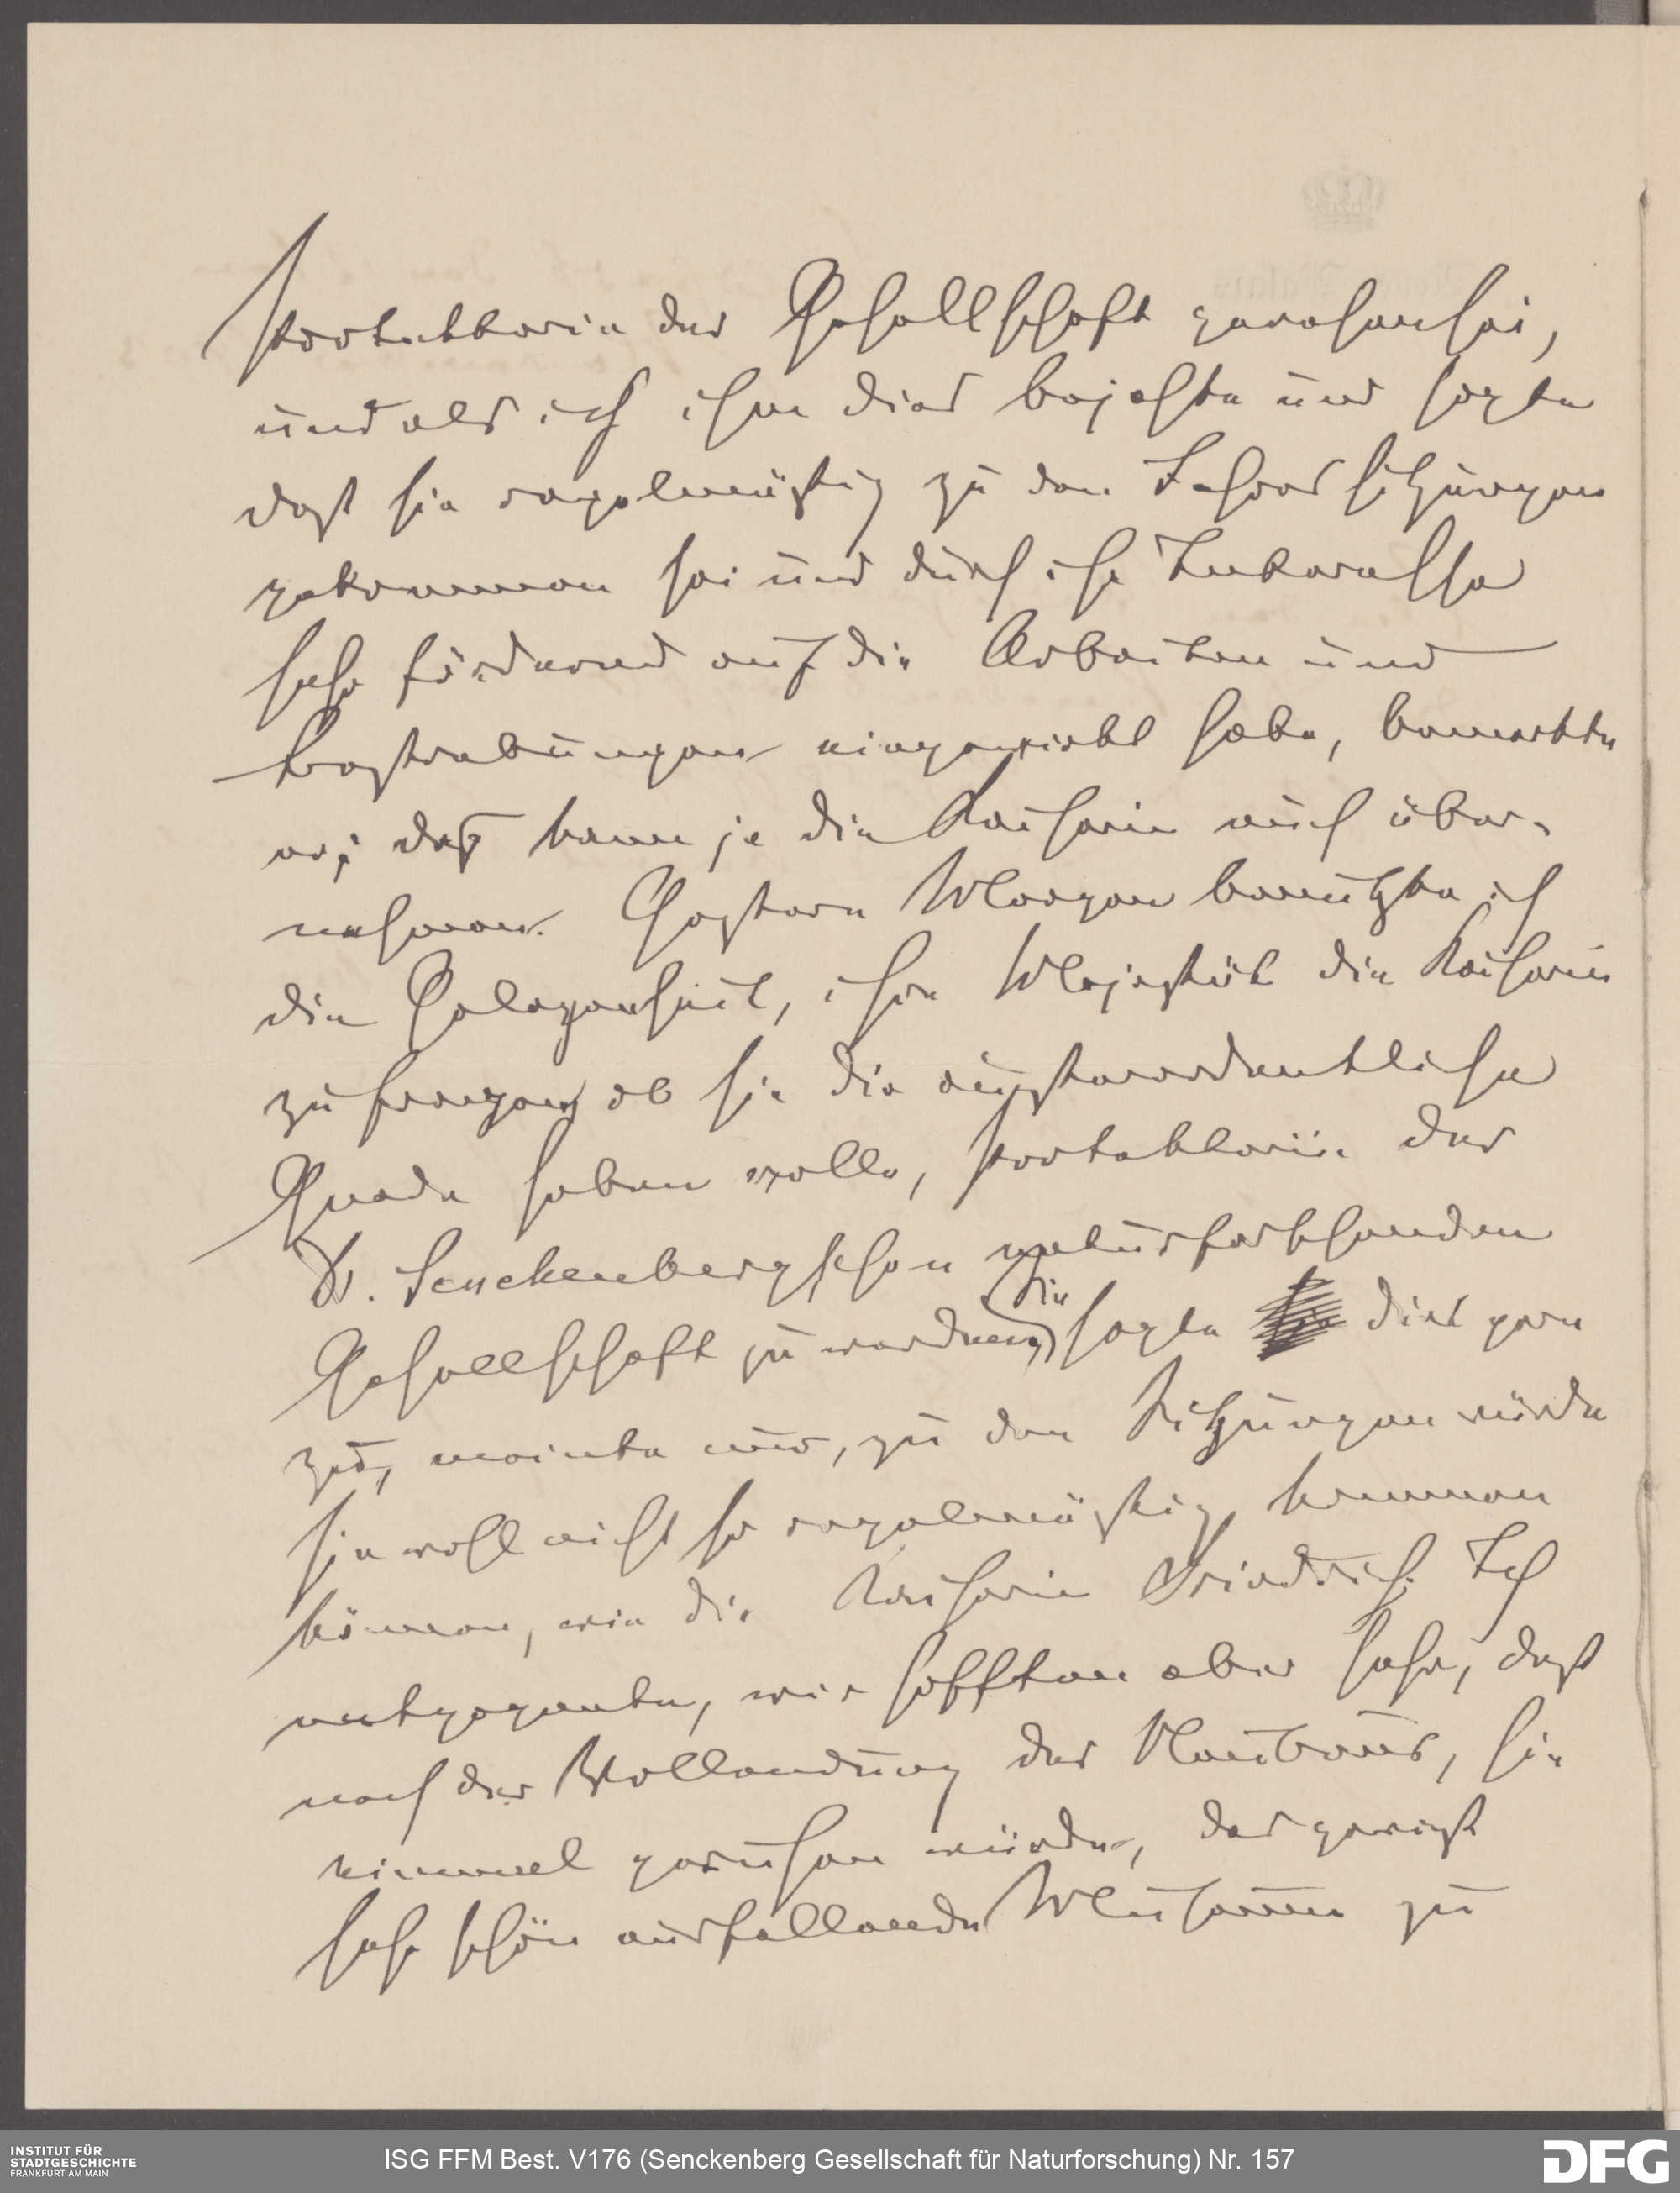 Protektorin der Gesellschaft gewesen sei,
und als ich ihm dies bejahte und sagte
daß sie regelmäßig zu den Jahressitzungen
gekommen sei und durch ihr Interesse
sehr fördernd auf die Arbeiten und
Bestrebungen eingewirkt habe, bemerkte
er; daß kann ja die Kaiserin auch über-
nehmen. Gestern Morgen benutzte ich
die Gelegenheit, ihre Majestät die Kaiserin
zu fragen, ob sie die außerordentliche
Gnade haben wolle, Protektorin der
Dr. Senckenbergschen naturforschenden
Gesellschaft zu werden, Sie sagte dies gern
zu, meinte nur, zu den Sitzungen würde
sie wohl nicht so regelmäßig kommen
können, wie die Kaiserin Friedrich. Ich
entgegnete, wir hofften aber sehr, daß
nach der Vollendung des Neubaus, sie
einmal geruhen würde, das gewiß
sehr schön ausfallende Museum zu
INSTITUT FÜR
STADTGESCHICHTE
FRANKFURT AM MAIN
ISG FFM Best. V176 (Senckenberg Gesellschaft für Naturforschung) Nr. 157
DFG